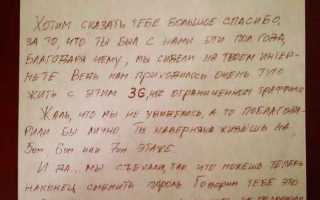 Хотим сказать тебе большое спасибо,
за то, что ты был с нами эти пол года,
благодаря чему, мы сидели на твоем интер-
нете. Ведь нам приходилось очень туго
жить с этим 3G, их ограниченном траффике
Жаль, что мы не увиделись, а то поблагода-
рили бы лично. Ты наверняка живешь на
5ом 6ом или 7ом этаже.
И да... мы съехали, так что можешь теперь
наконец сменить пароль. Говорим тебе это